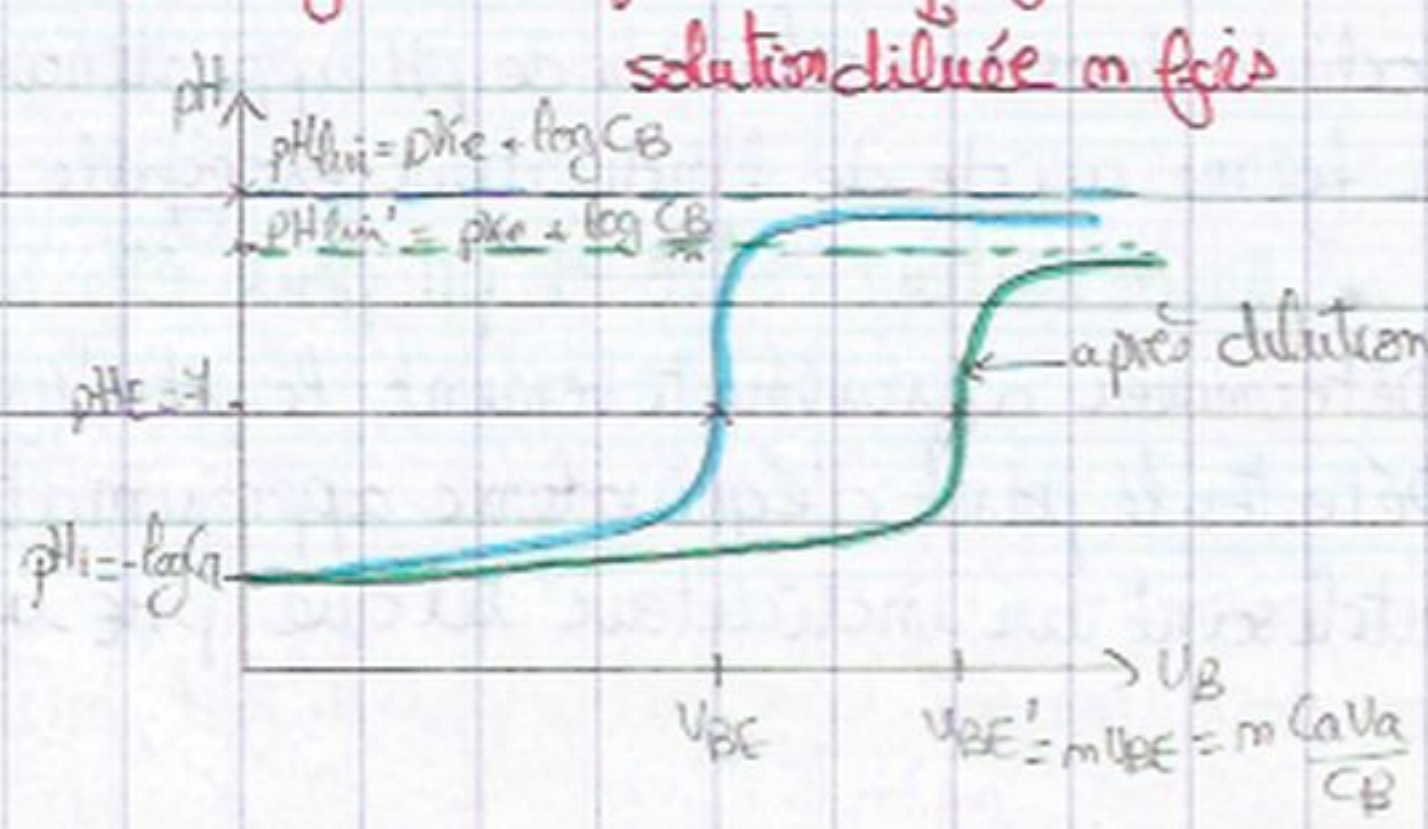 solution diluée n fois
pH
pHlim = pKe + log CB
pHlim' = pKe + log CB/n
pHE = 7
après dilution
pHi = -log Ca
VB
VBE
VBE' = nVBE = n CaVa/CB